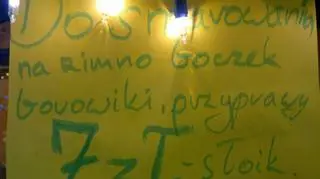 Do smarowania
na zimno Boczek
borowiki, przyprawy
7 zł - słoik